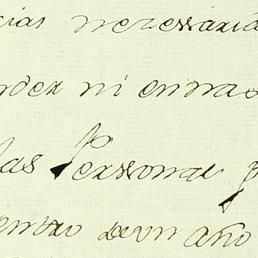 cias nezessaria
nder ni en mas
las Personas y
entro de un año